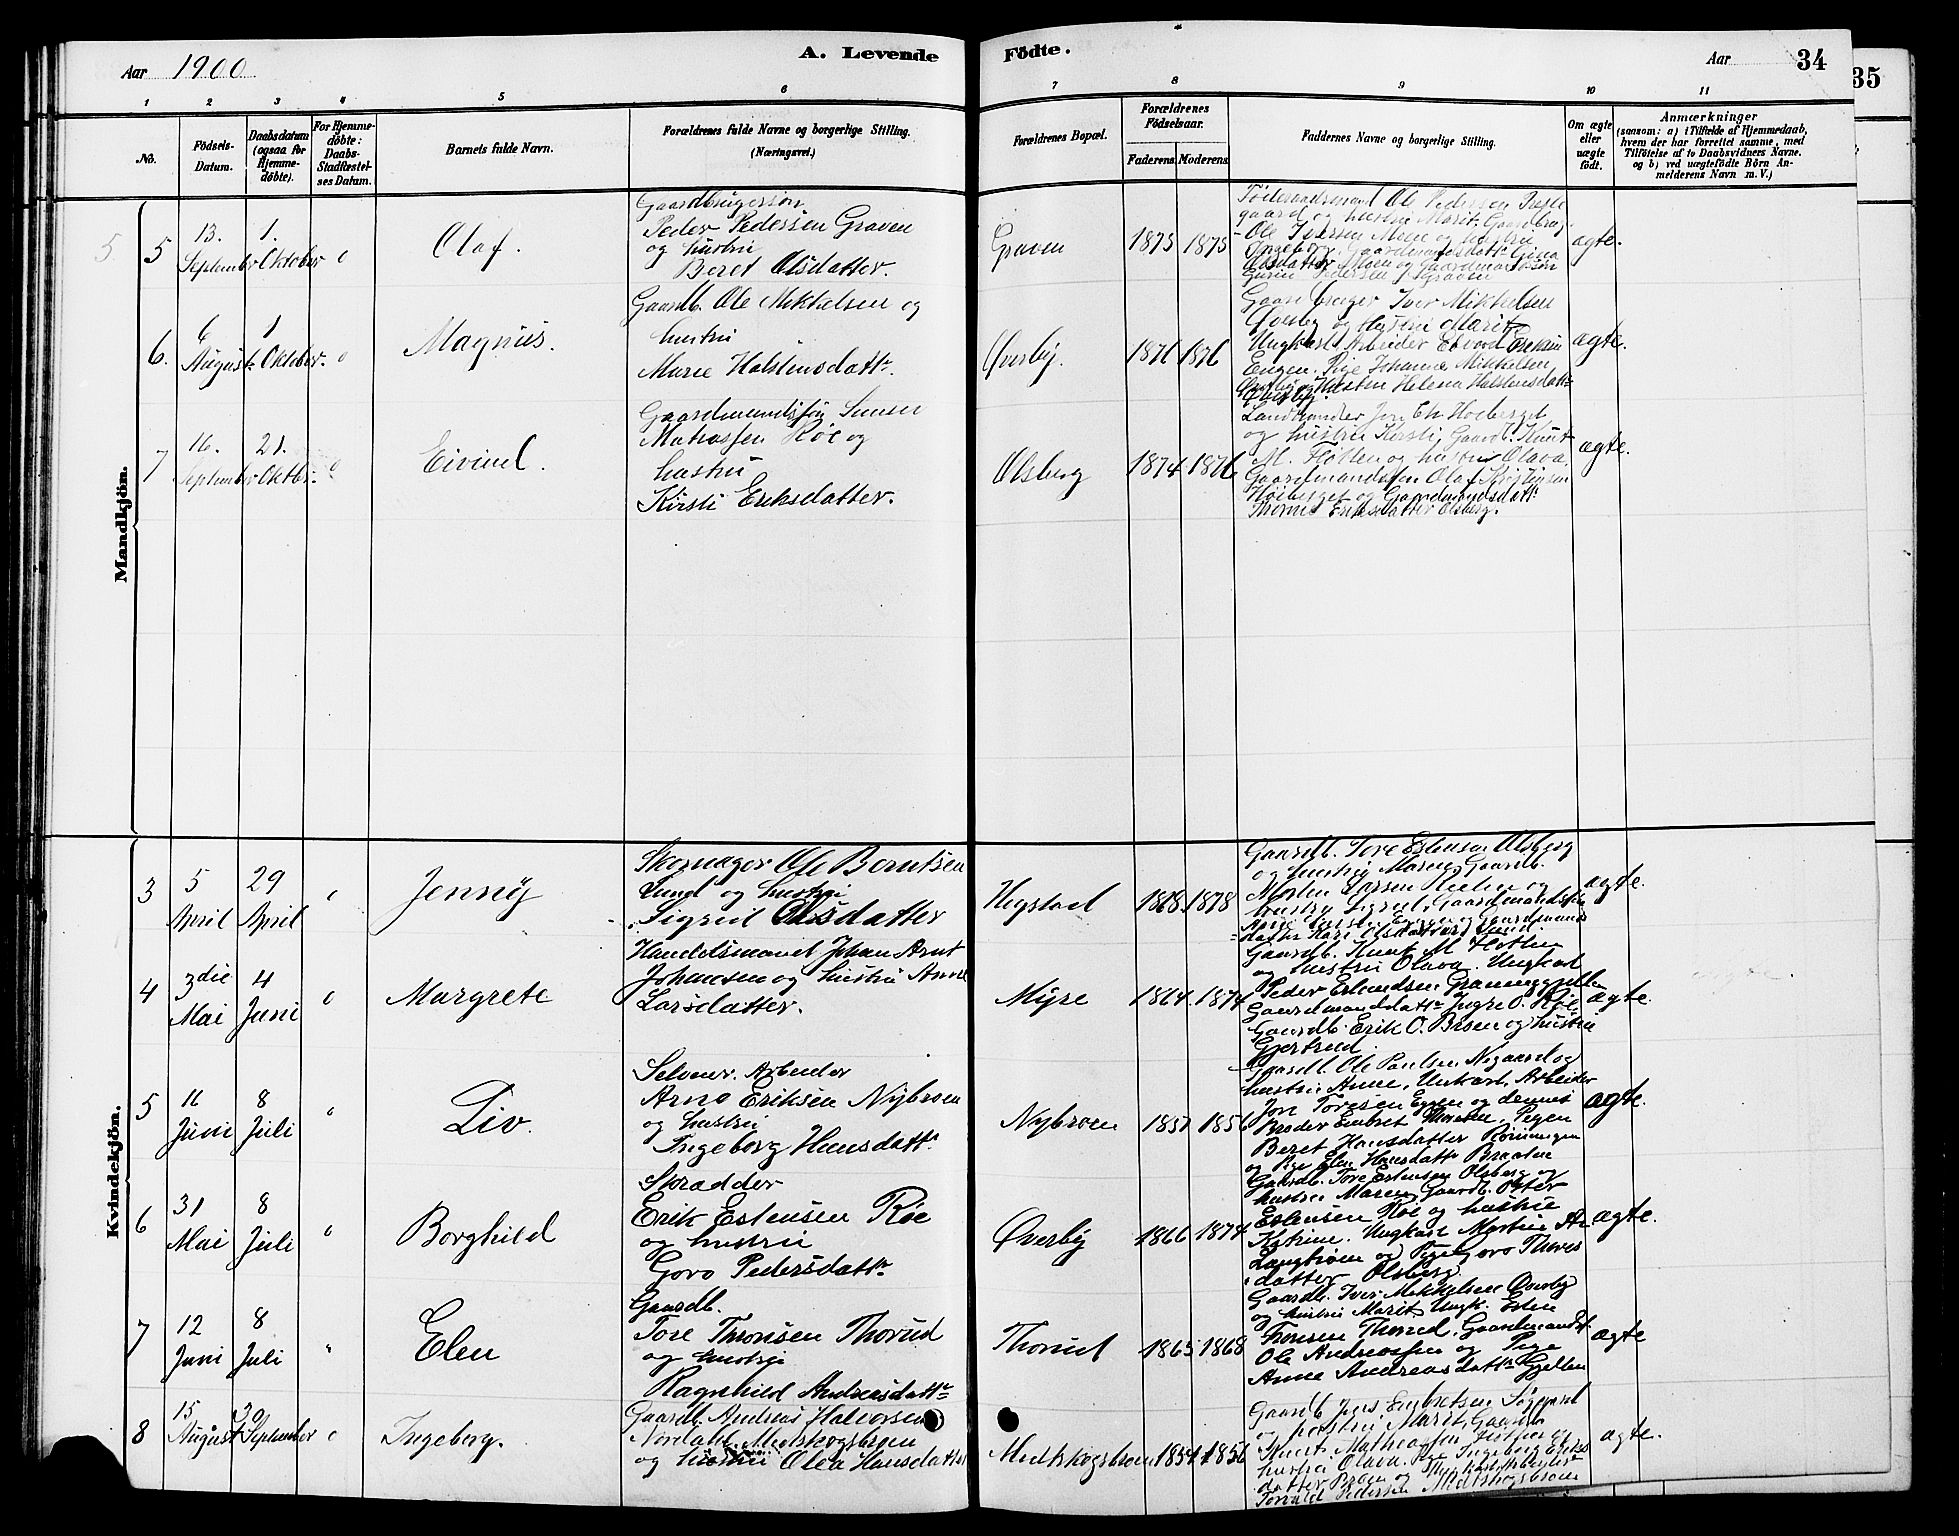 Aar 1900
A. Levende
Födte.
Aar
34
35
1 2 3 4 5 6 7 8 9 10 11
No.
Födsels-Datum.
Daabsdatum (ogsaa for Hjemme-döbte).
For Hjemme-döbte: Daabs-Stadfæstel-ses Datum.
Barnets fulde Navn.
Forældrenes fulde Navne og borgerlige Stilling.
(Næringsvei.)
Forældrenes Bopæl.
Forældrenes Födselsaar.
Faderens Moderens
Faddernes Navne og borgerlige Stilling.
Om ægte eller uægte födt.
Anmærkninger
(saasom: a) i Tilfælde af Hjemmedaab,
hvem der har forrettet samme, med
Tilföielse af to Daabsvidners Navne.
og b) ved uægtefödte Börn An-
melderens Navn m. V.)
Mandkjön.
5
5
13. September
1. Oktober
Olaf.
Gaardbrugersøn
Peder Pedersen Graven
og hustru
Beret Olsdatter.
Graven
1875 1875
Føderaadsmand Ole Pedersen
gaard og hustru Marit, Gaardbrug.
Ole Iversen Moen og hustru
Ingeborg, Gaardmandsdatt.
Olsdatter Moen og Gaardmandssøn
Pedersen Graven
ægte.
6.
6 August
1 Oktober
Magnus.
Gaardb. Ole Mikkelsen og
hustru
Marie Halstensdattr.
Øverby.
1876 1876
Gaardbruger Iver Mikkelsen
Øverby og Hustru Marit,
Ungkarl Arbeider Edvard Eriksen
Engen. Pige Johanne Mikkelsen
Helena Halstensdattr
Øverby.
ægte.
7
16. September
21. Oktbr.
Eivind.
Gaardmandsføg
Mathiassen Røe og
hustru
Kirsti Eriksdatter.
Olsberg
1874 1876
Landhandler Jon Ch. Hoiberget
og hustru Kirsti, Gaardb. Knut
M. Fløtten og hustru Olava,
Gaardmandsføn Olaf
Høiberget og Gaardmandsdattr
Eriksdatter Olsberg.
ægte.
Kvindekjön.
3
5 April
29 April
Jenny
Skomager Ole Berntsen
Lund og hustru
Sigrid Olsdatter
Hegstad
1868 1878
Gaardb. Tore Estensen Olsberg
og hustru Maren, Gaardb.
Morten Larsen og
hustru Sigrid, Gaardmandsføn
og Gaardmands
datter Kari Olsdatter Lund.
ægte.
4
3die Mai
4 Juni
Margrete
Handelsmand Johan Arnt
Johansen og hustru Anne
Larsdatter.
Myre
1864 1874
Gaardb. Knut M. Fløtten
og hustru Olava. Ungkarl
Peder Erlandsen
Gaardmandsdattr Ingri O. Røe,
Gaardb. Erik O. Brøen og hustru
Gjertrud.
ægte.
5
11 Juni
8 Juli
Liv.
Selveier. Arbeider
Arne Eriksen Nybrøen
og hustru
Ingeborg Hansdattr.
Nybrøen
1857 1856
Gaardb. Ole Paulsen Nygaard og
hustru Anne, Unkarl. Arbeider
Jon Toresen Eggen og dennes
Broder Embret, Pigen
Beret Hansdatter Rønningen
og Pige Elen Hansdattr Braaten
ægte.
6
31 Mai
8 Juli
Borghild
Skrædder
Erik Estensen Røe
og hustru
Goro Pedersdattr
Øverby
1866 1874
Gaardb. Tore Estensen Olsberg og
hustru Maren, Gaardb. Peter
Estensen Røe og hustru
Katrine. Ungkarl
Langbrøen og Pige Goro Thores
datter Olsberg.
ægte.
7
12 Juni
8 Juli
Elen
Gaardb.
Tore Thronsen Thorud
og hustru
Ragnhild Andreasdattr
Thorud
1865 1868
Gaardb. Iver Mikkelsen Øverby
og hustru Marit, Ungk. Esten
Tronsen Thorud, Gaardmandst
Ole Andreassen og Pige
Anne Andreasdattr Gjelten
ægte
8
15 August
30 September
Ingeborg.
Gaardb. Andreas Halvorsen
Nordahl, Midtskogsbrøen
og hustru Olea Hansdatter
Midtskogsbrøen
1854 1856
Gaardb. Jens Embretsen Søgaard
og hustru Marit, Gaardb.
Knut Mathiassen Fløtten og
hustru Olava. Pige Ingeborg Eriks
datter Brøen og Ungkarl Arbeider
Torvald Pedersen Midtskogsbrøen
ægte.